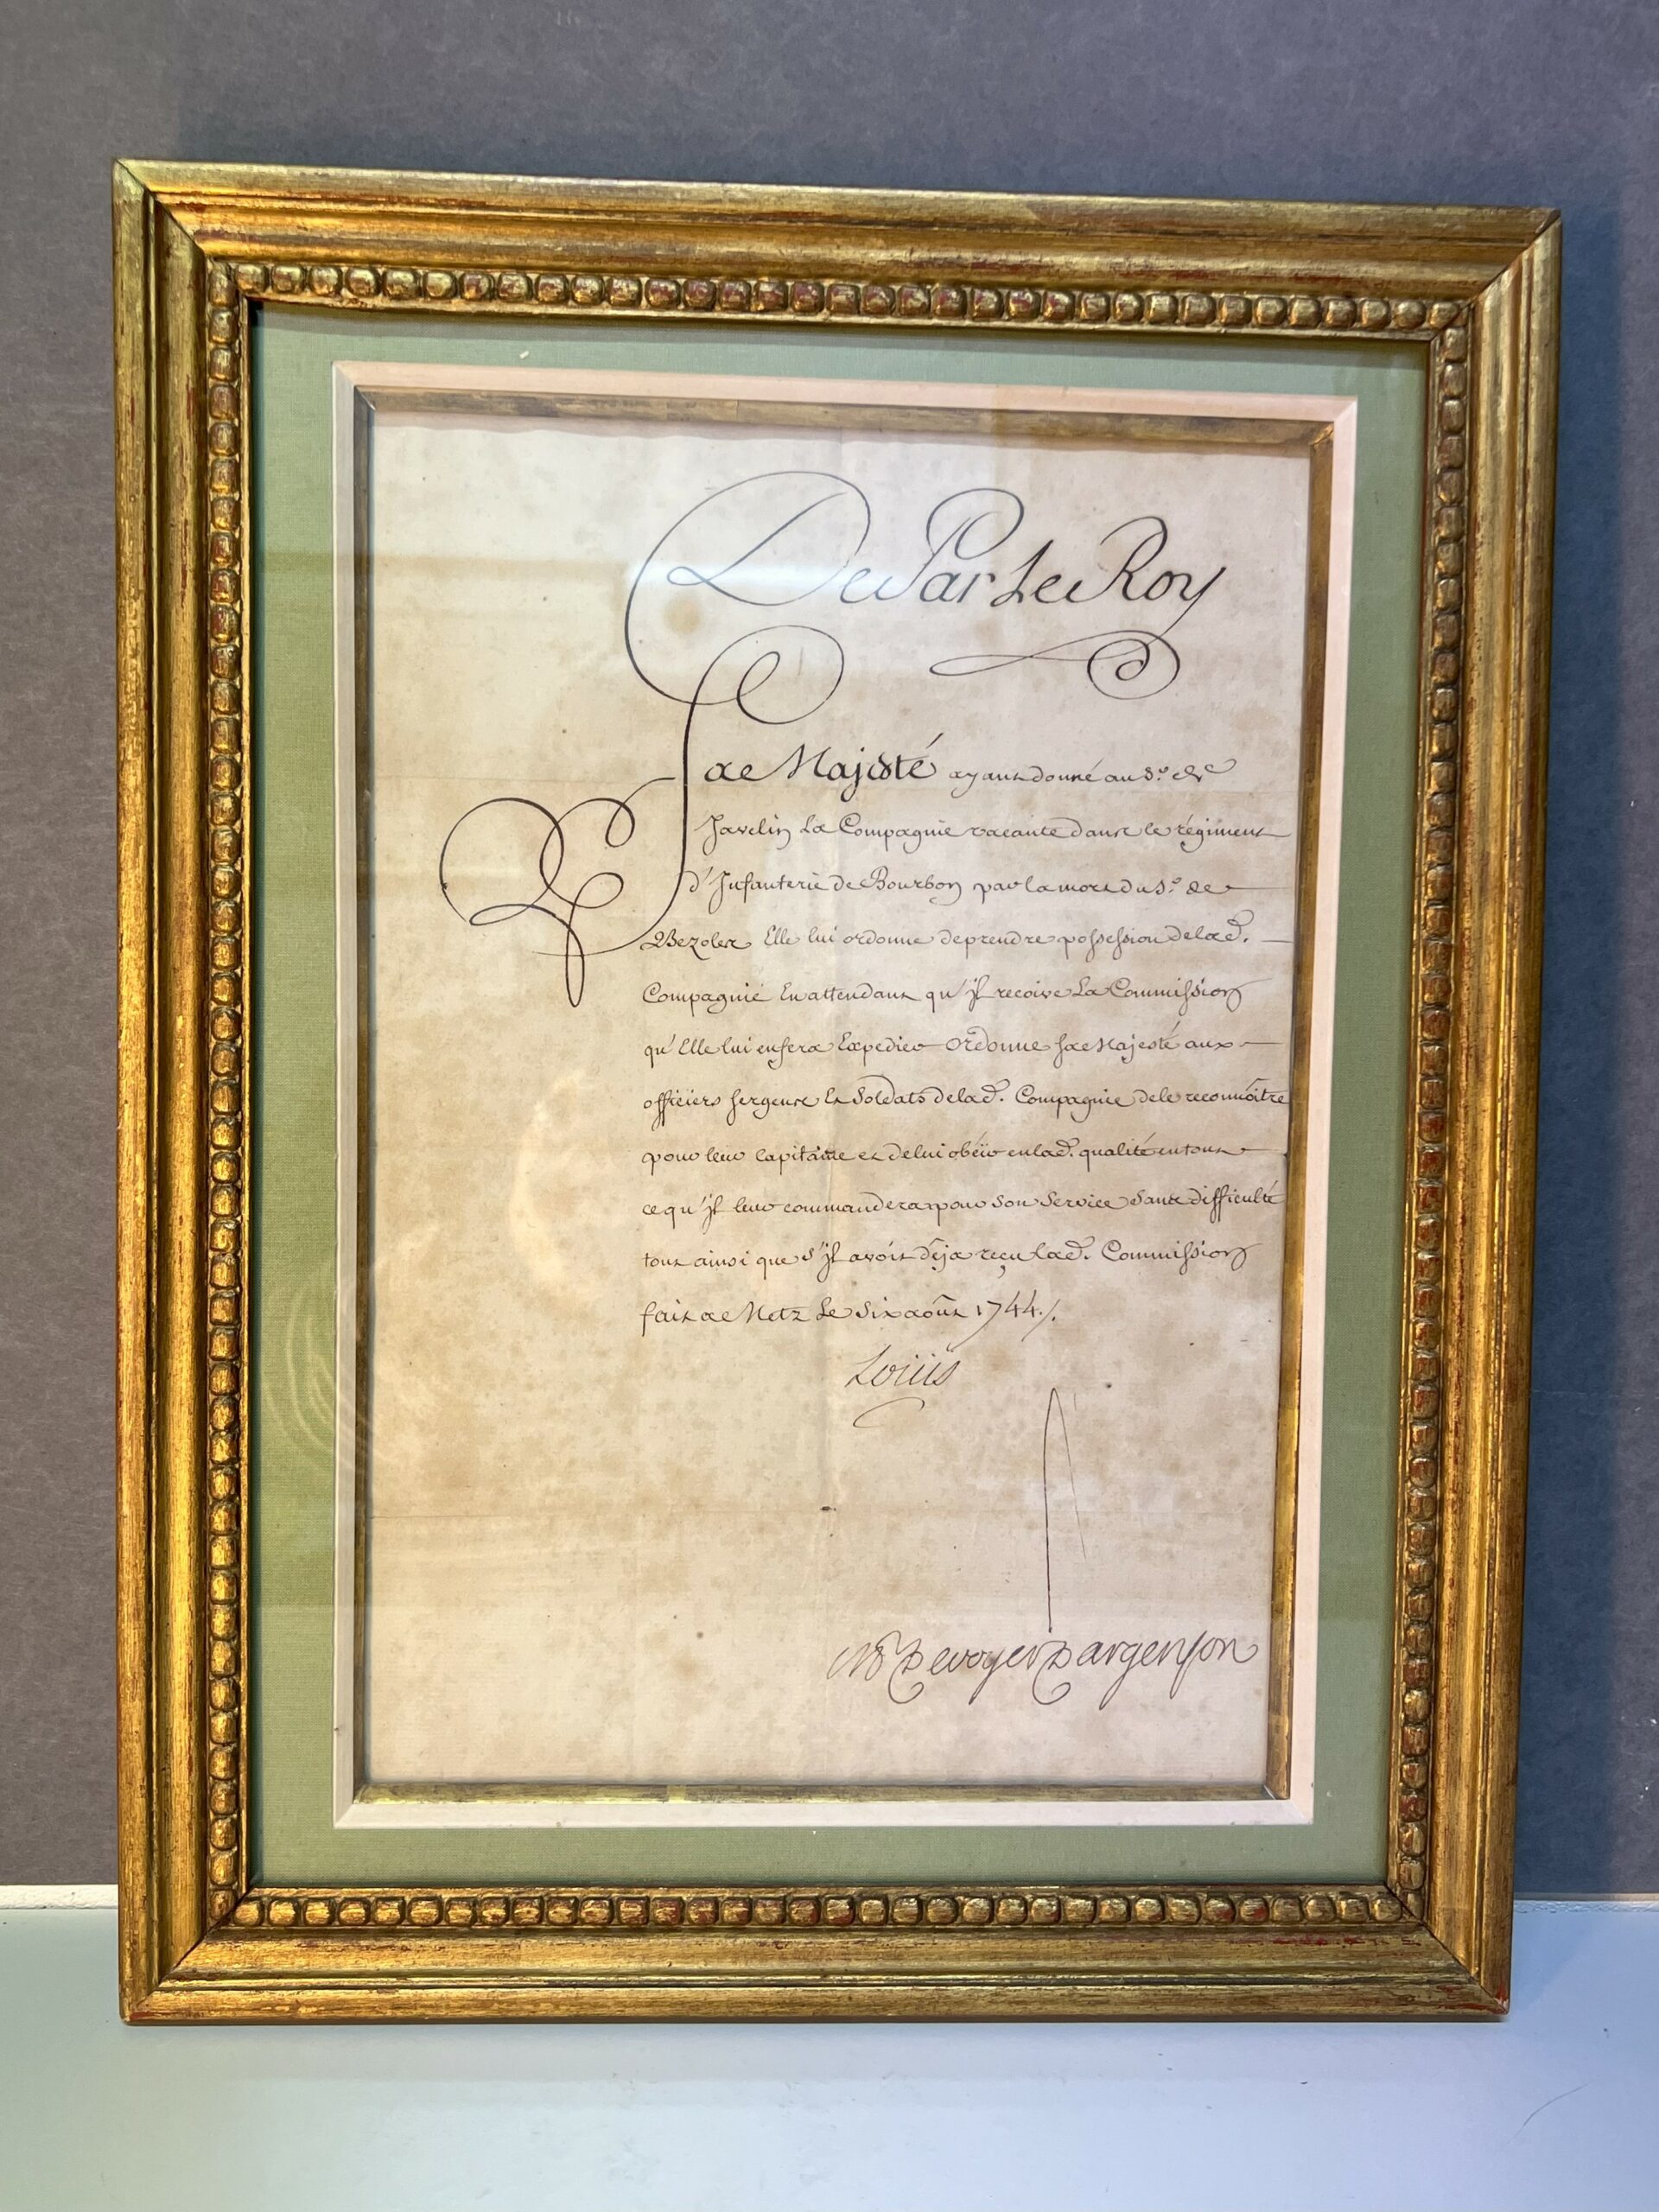 De Par Le Roy
Sa Majesté ayant donné au S.r de
Javelin La Compagnie vacante dans le régiment
d'Infanterie de Bourbon par la mort du S.r de
Bezoles Elle lui ordonne de prendre possession de lad.
Compagnie En attendant qu'jl recoive La Commission
qu'Elle lui en fera Expedier ordonne sa Majesté aux
officiers sergens Et Soldats de lad. Compagnie de le reconnoître
pour leur Capitaine et de lui obéir en lad. qualité en tout
ce qu'jl leur commandera pour son service sans difficulté
tout ainsi que s'jl avoit déja reçu lad. Commission
fait a Metz Le six août 1744./.
Loüis
De voyer D argenson